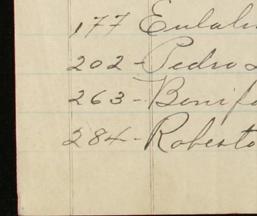 177 Eulali
202-Pedro
263-Bonif
284-Roberto